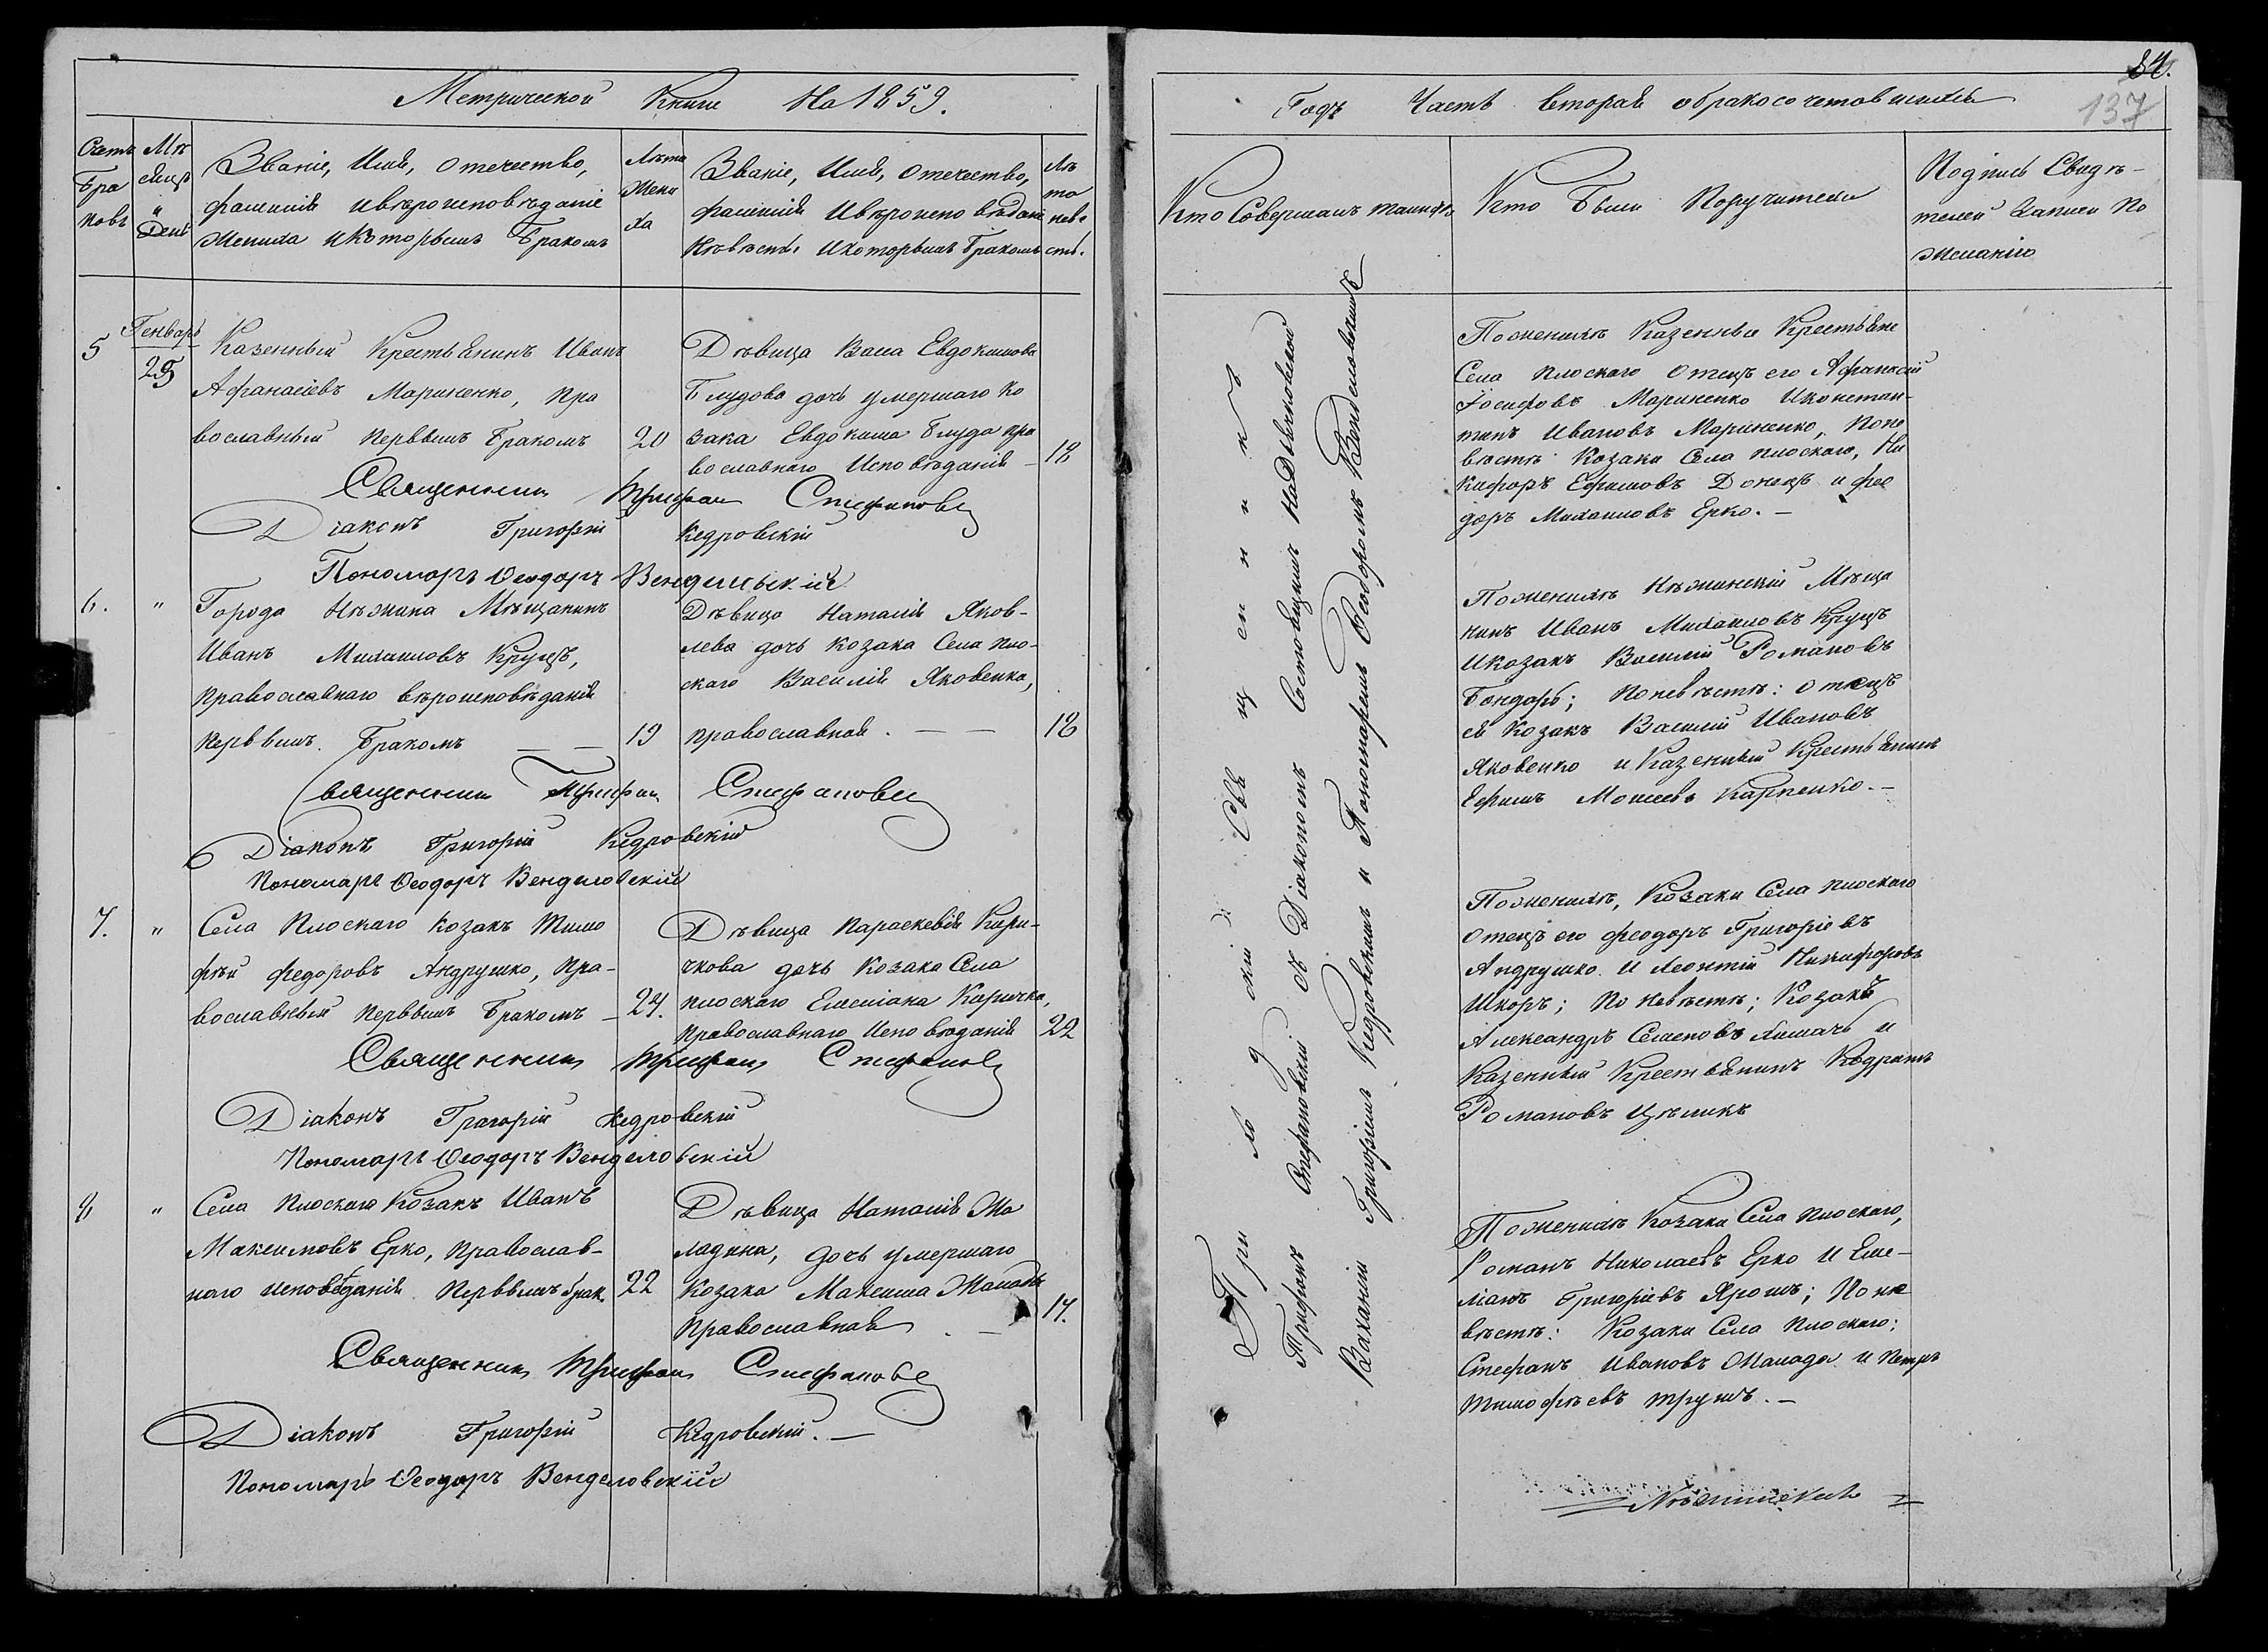 Метрической Книги На 1859.
Счетъ Браковъ
Мѣсяцъ и День
Званіе, Имя, Отечество,
фамилія и вѣроисповѣданіе
Жениха и Которымъ Бракомъ
Лѣта Жениха
Званіе, Имя, Отечество,
фамилія И вѣроисповѣдані
Невѣсты И которымъ Бракомъ
Лѣта невесты.
5
Генварь
25
Казенный Крестьянинъ Иванъ
Афанасіевъ Мариненко, Пра
вославный Первымъ Бракомъ
20
Дѣвица Васа Евдокимова
Блудова дочь умершаго Ко
зака Евдокима Блуда пра
вославнаго Исповѣданія
18
Священникъ Трифонъ Стефановс
Діаконъ Григорій Кедровскій
Пономарь Ѳеодоръ Венделовскій
6. "
Города Нѣжина Мѣщанинъ
Иванъ Михаиловъ Крущъ,
православнаго вѣроисповѣданія
первымъ Бракомъ
19
Дѣвица Наталія Яков-
лева дочь козака Села Пло-
скаго Василія Яковенка,
православной.
18
Священникъ Трифонъ Стефановс
Діаконъ Григорій Кедровскій
Пономарь Ѳеодоръ Венделовскій
7. "
Села Плоскаго Козакъ Тимо
фѣй Федоровъ Андрушко, Пра-
вославный Первымъ Бракомъ
24.
Дѣвица Параскевія Кири-
чкова дочь Козака Села
плоскаго Емеліана Киричка,
православнаго Исповѣданія
22
Священникъ Трифонъ Стефановс
Діаконъ Григорій Кедровскій
Пономарь Ѳеодоръ Венделовскій
8 "
Села Плоскаго Козакъ Иванъ
Максимовъ Ерко, Православ-
наго исповѣданія Первымъ брак.
22
Дѣвица Наталія Ма
ладина, дочь умершаго
Козака Максима Малады
Православная
17.
Священникъ Трифонъ Стефановс
Діаконъ Григорій Кедровскій.
Пономарь Ѳеодоръ Венделовскій
84.
137
Годъ Часть вторая о бракосочетавшихся
Кто Совершалъ таинство
Кто Были Поручители
Подпись Свидѣ-
телей Записи По
желанію
Приходскій Священникъ
Трифонъ Стефановскій съ Діакономъ Состоящимъ На Дьячковской
Ваканціи Григоріемъ Кедровскимъ и Пономаремъ Ѳеодоромъ Венделовскимъ
По женихѣ Казенные Крестьяне
Села плоскаго Отецъ его Афанасій
Іосифовъ Мариненко И констан-
тинъ Ивановъ Мариненко, По не
вѣстѣ Козаки Села плоскаго, Ни
кифоръ Ефимовъ Донецъ и Фео
доръ Михаиловъ Ерко.
По женихѣ Нѣжинскій Мѣща
нинъ Иванъ Михаиловъ Крущъ
И козакъ Василій Романовъ
Бондарь; По невѣстѣ: отецъ
ея Козакъ Василій Ивановъ
Яковенко и Казенный Крестьянинъ
Ефимъ Моисеевъ Карпенко.
По женихѣ, Козаки Села плоскаго
отецъ его Феодоръ Григоріевъ
Андрушко И Леонтій Никифоровъ
Шкоръ; По невѣстѣ; Козакъ
Александръ Семеновъ Лихачъ и
Казенный Крестьянинъ Кодратъ
Романовъ Цѣликъ
По женихѣ Козаки Села плоскаго,
Романъ Николаевъ Ерко И Еме-
ліанъ Григоріевъ Ярошъ; По не
вѣстѣ: Козаки Села плоскаго:
Стефанъ Ивановъ Малада и Петръ
Тимофѣевъ Трушъ.